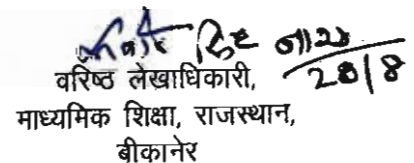 28/8
वरिष्ठ लेखाधिकारी,
माध्यमिक शिक्षा, राजस्थान,
बीकानेर